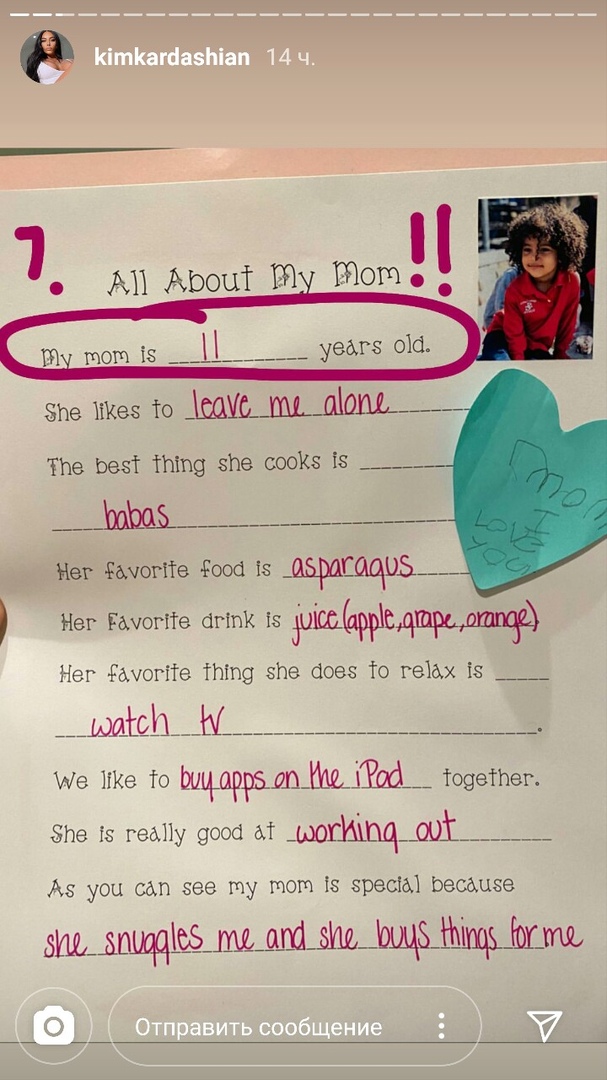 kimkardashian 14 ч.
7.
All About My Mom!!
My mom is 11 years old.
She likes to leave me alone
The best thing she cooks is
babas
Her favorite food is asparagus
Her Favorite drink is juice (apple, grape, orange)
Her favorite thing she does to relax is
watch tv.
We like to buy apps on the iPad together.
She is really good at working out
As you can see my mom is special because
she snuggles me and she buys things for me
MOM
I
LOVE
YOU
Отправить сообщение